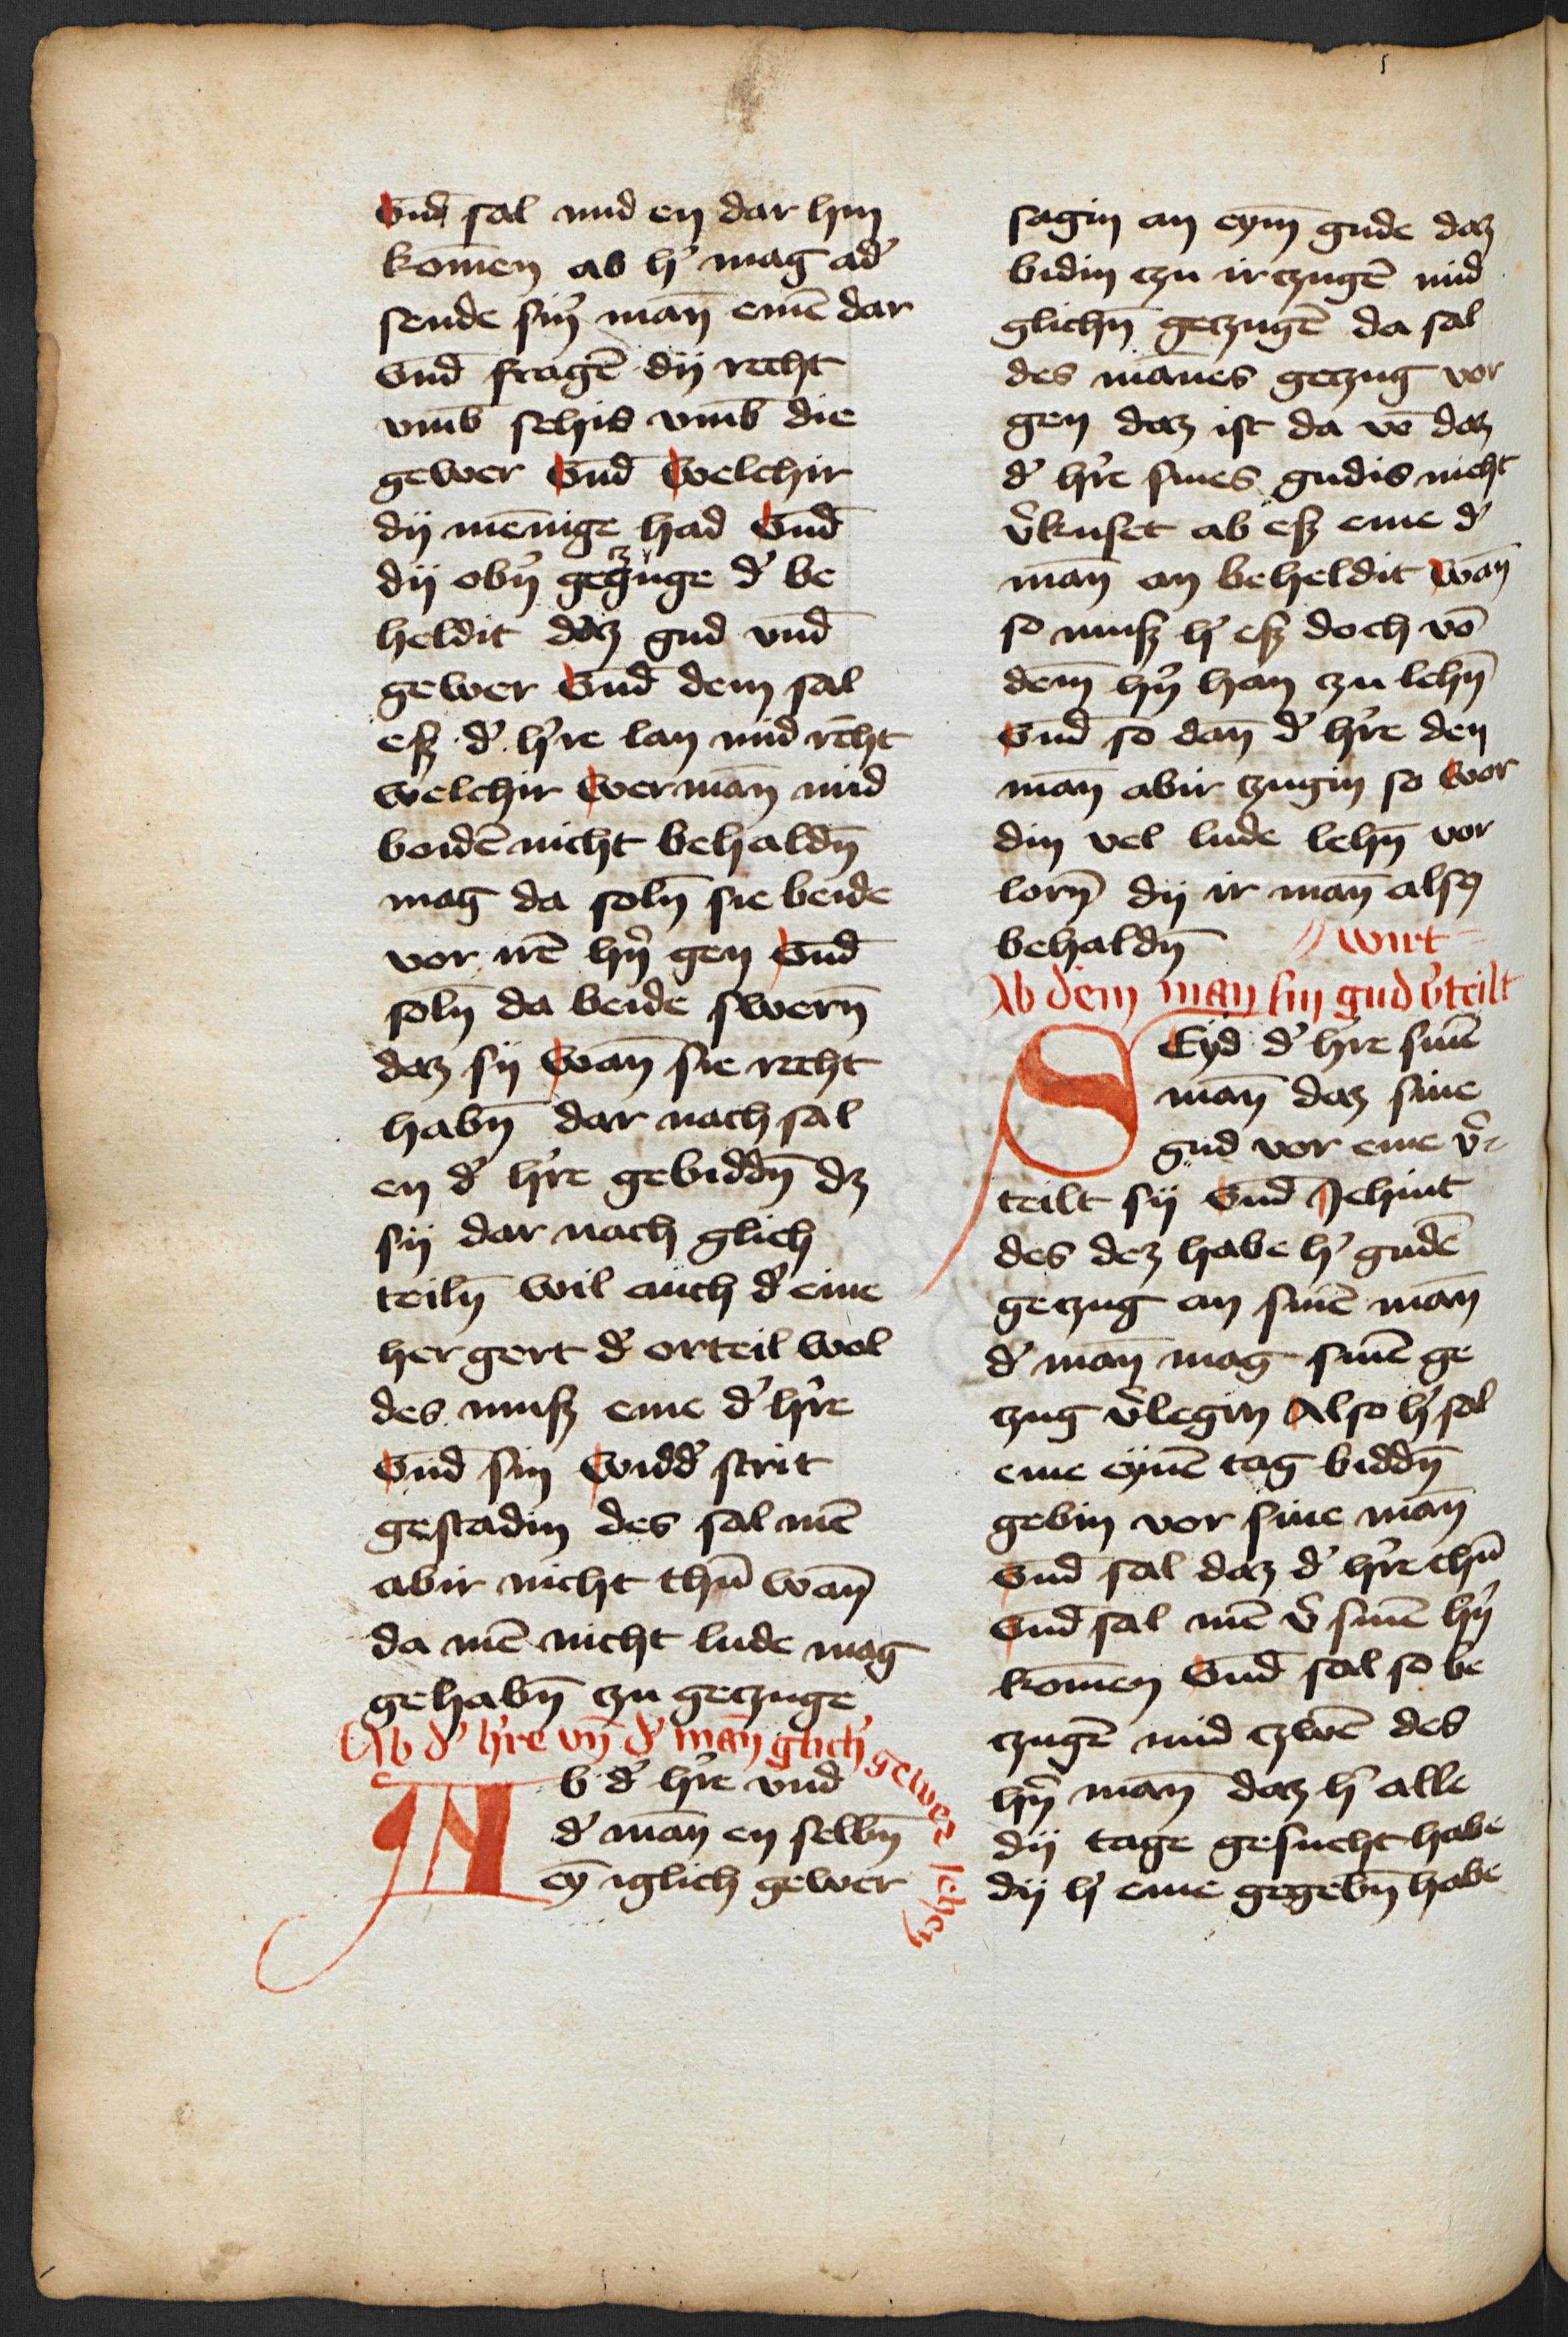 Vnd sal mid en dar hin
kom̄en ab h' mag ad'
sende sin' man̄ einē dar
Vnd fragē dij recht
vm̄b sehis vm̄b die
gewer Vnd Welchir
dij men̄nige had Vnd
dij obn̄ geczuge d' be
heldit daz gud vnd
gewer Vnd dem sal
eß d' h're lan mid recht
welchir Wer man̄ mid
boidē nicht behaldn̄
mag da soln̄ sie beide
vor irē hn̄ gen Vnd
soln̄ da beide swern̄
daz sij Wan̄ sie recht
habn̄ dar nach sal
en d' h're gebiddn̄ dz
sij dar nach glich
teiln̄ wil auch d' eine
her gert d' orteil wol
des muß eme d' h're
Vnd sin Widd' strit
gestadin des sal mē
abir nicht thun̄ wan̄
da mē nicht lude mag
gehabn̄ czu geczuge
Ab d' h're vn̄ d' man̄ glich' gewer iehen
Ab d' h're vnd
d' man̄ en selbn̄
ey̅ iglich gewer
sagin an eym̄ gude daz
bidin czu irczugē mid
glichn̄ geczugē da sal
des man̄es geczug vor
gen daz ist da vō daz
d' h're sines gudis nicht
v'kuset ab eß eme d'
man̄ an beheldit wan̄
so muß h' eß doch vō
dem̄ hn̄ han zu lehn̄
Vnd so dan̄ d' h're den
man̄ abir czugin so wor
din vel lude lehn̄ vor
lorn̄ dij ir man̄ alse
behaldn̄ // wirt
Ab dem man sin gud v'teilt
SEyd d' h're sinē
man̄ daz sine
gud vor eme v'
teilt sij Vnd Jehint
des dez habe h' gudē
geczug an sinē man̄
d' man̄ mag sinē ge
czug v'legin Also h' sal
eme eynē tag biddn̄
gebin vor sine man̄
Vnd sal daz d' h're thun̄
Vnd sal mē v' sinē hn̄
kom̄en Vnd sal so be
czugē mid czwē des
hn̄ man̄ daz h' alle
dij tage gesucht habe
dij h' eme gegebn̄ habe